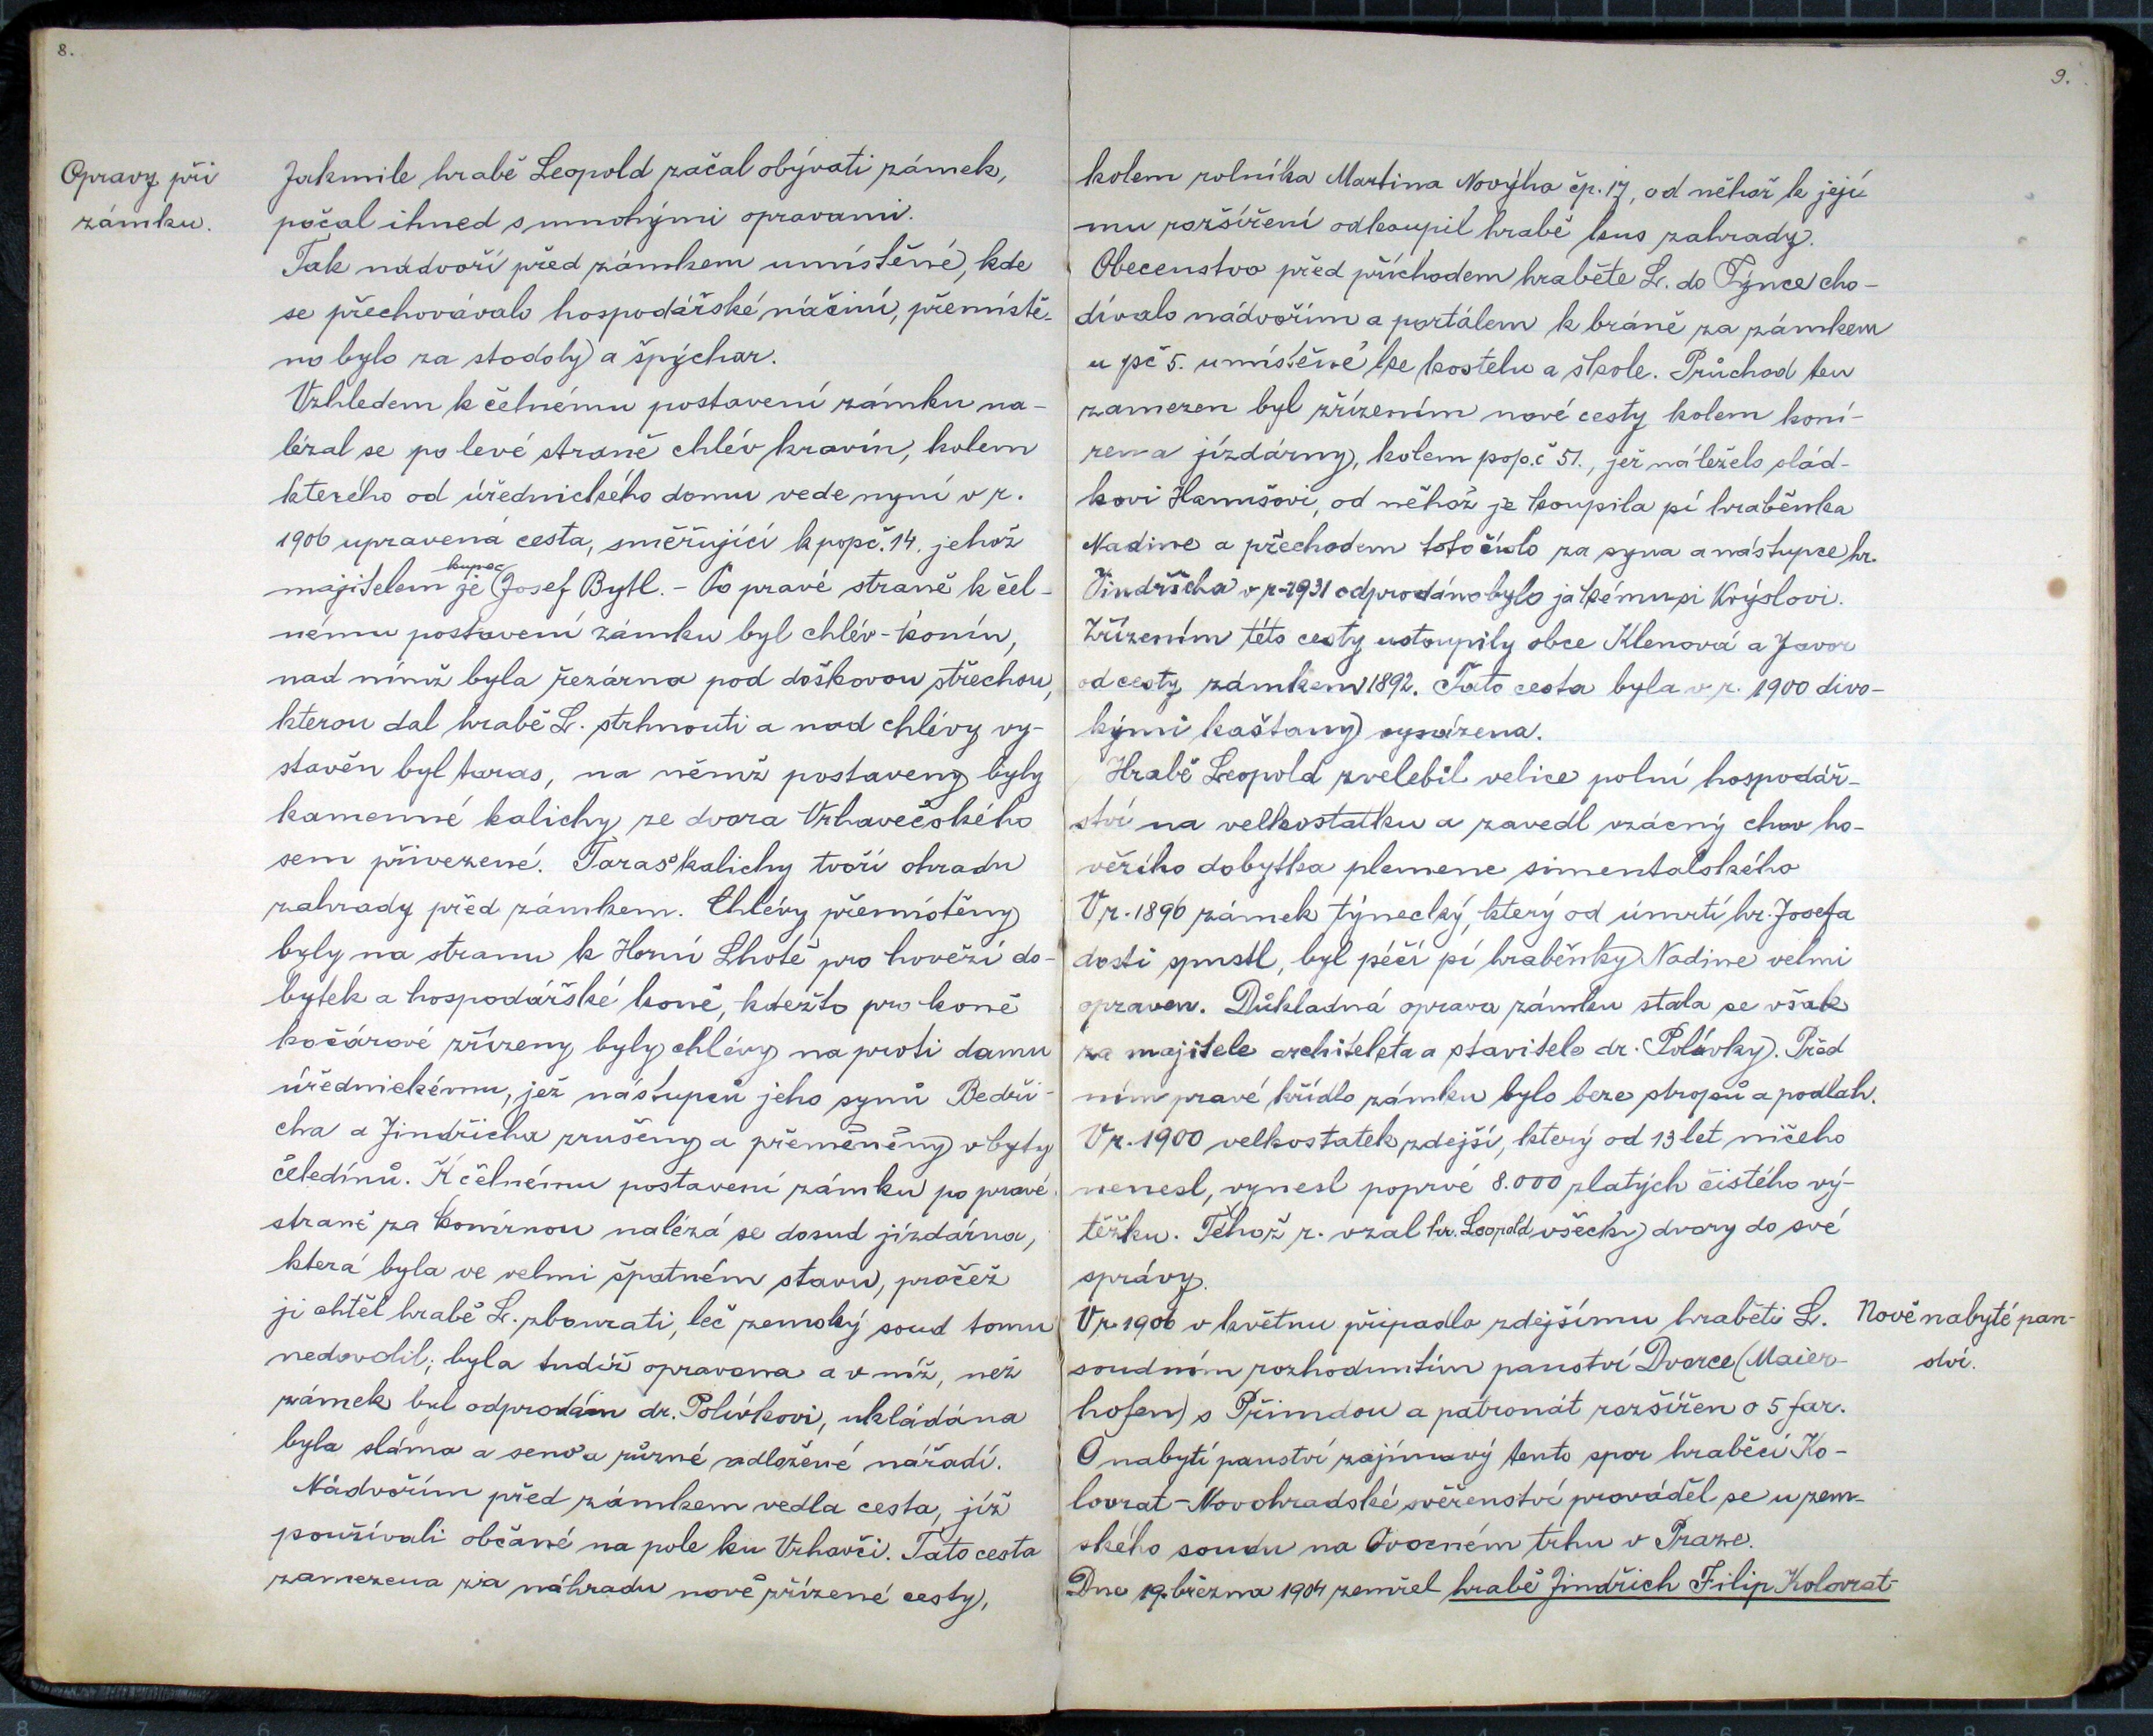 8.
Opravy při
zámku.
Jakmile hrabě Leopold začal obývati zámek,
počal ihned s mnohými opravami.
Tak nádvoří před zámkem umístěné, kde
se přechovávalo hospodářské náčiní, přemístě-
no bylo za stodoly a špýchar.
Vzhledem k čelnému postavení zámku na-
lézal se po levé straně chlév kravín, kolem
kterého od úřednického domu vede nyní v r.
1906 upravená cesta, směřující k popč. 14. jehož
majitelem je kupec Josef Bytl. - Po pravé straně k čel-
nému postavení zámku byl chlév-konín,
nad nímž byla řezárna pod doškovou střechou,
kterou dal hrabě L. strhnouti a nad chlévy vy-
stavěn byl taras, na němž postaveny byly
kamenné kalichy ze dvora Vrhavečského
sem přivezené. Taras s kalichy tvoří ohradu
zahrady před zámkem. Chlévy přemístěny
byly na stranu k Horní Lhotě pro hovězí do-
bytek a hospodářské koně, kdežto pro koně
kočárové zřízeny byly chlévy naproti domu
úřednickému, jež nástupců jeho synů Bedři-
cha a Jindřicha zrušeny a přeměněny v byty
čeledínů. K čelnému postavení zámku po pravé
straně za konírnou nalézá se dosud jízdárna,
která byla ve velmi špatném stavu, pročež
ji chtěl hrabě L. zbourati, leč zemský soud tomu
nedovolil; byla tudíž opravena a v níž, než
zámek byl odprodán dr. Polívkovi, ukládána
byla sláma a seno a různé odložené nářadí.
Nádvořím před zámkem vedla cesta, jíž
používali občané na pole ku Vrhavči. Tato cesta
zamezena za náhradu nově zřízené cesty,
9.
kolem rolníka Martina Novýho čp. 17, od něhož k její
mu rozšíření odkoupil hrabě kus zahrady.
Obecenstvo před příchodem hraběte L. do Týnce cho-
dívalo nádvořím a portálem k bráně za zámkem
u pč 5. umístěné ke kostelu a škole. Průchod ten
zamezen byl zřízením nové cesty kolem koní-
ren a jízdárny, kolem pop.č 51., jež náleželo slád-
kovi Hanušovi, od něhož je koupila pí hraběnka
Nadine a přechodem toto číslo za syna a nástupce hr.
Jindřicha v r. 1931 odprodáno bylo jakémusi Krýslovi.
Zřízením této cesty ustoupily obce Klenová a Javor
od cesty zámkem 1892. Tato cesta byla v r. 1900 divo-
kými kaštany vysázena.
Hrabě Leopold zvelebil velice polní hospodář-
ství na velkostatku a zavedl vzácný chov ho-
vězího dobytka plemene simentalského
V r. 1896 zámek týnecký, který od úmrtí hr. Josefa
dosti zpustl, byl péčí pí hraběnky Nadine velmi
opraven. Důkladná oprava zámku stala se však
za majitele architekta a stavitele dr. Polívky. Před
ním pravé křídlo zámku bylo beze stropů a podlah.
V r. 1900 velkostatek zdejší, který od 13 let ničeho
nenesl, vynesl poprvé 8.000 zlatých čistého vý-
těžku. Téhož r. vzal hr. Leopold všecky dvory do své
správy.
V r. 1906 v květnu připadlo zdejšímu hraběti L.
soudním rozhodnutím panství Dvorce (Maier-
hofen) s Přimdou a patronát rozšířen o 5 far.
O nabytí panství zajímavý tento spor hraběcí Ko-
lovrat-Novohradské svěřenství prováděl se u zem-
ského soudu na Ovocném trhu v Praze.
Dne 19. března 1904 zemřel hrabě Jindřich Filip Kolovrat-
Nově nabyté pan-
ství.